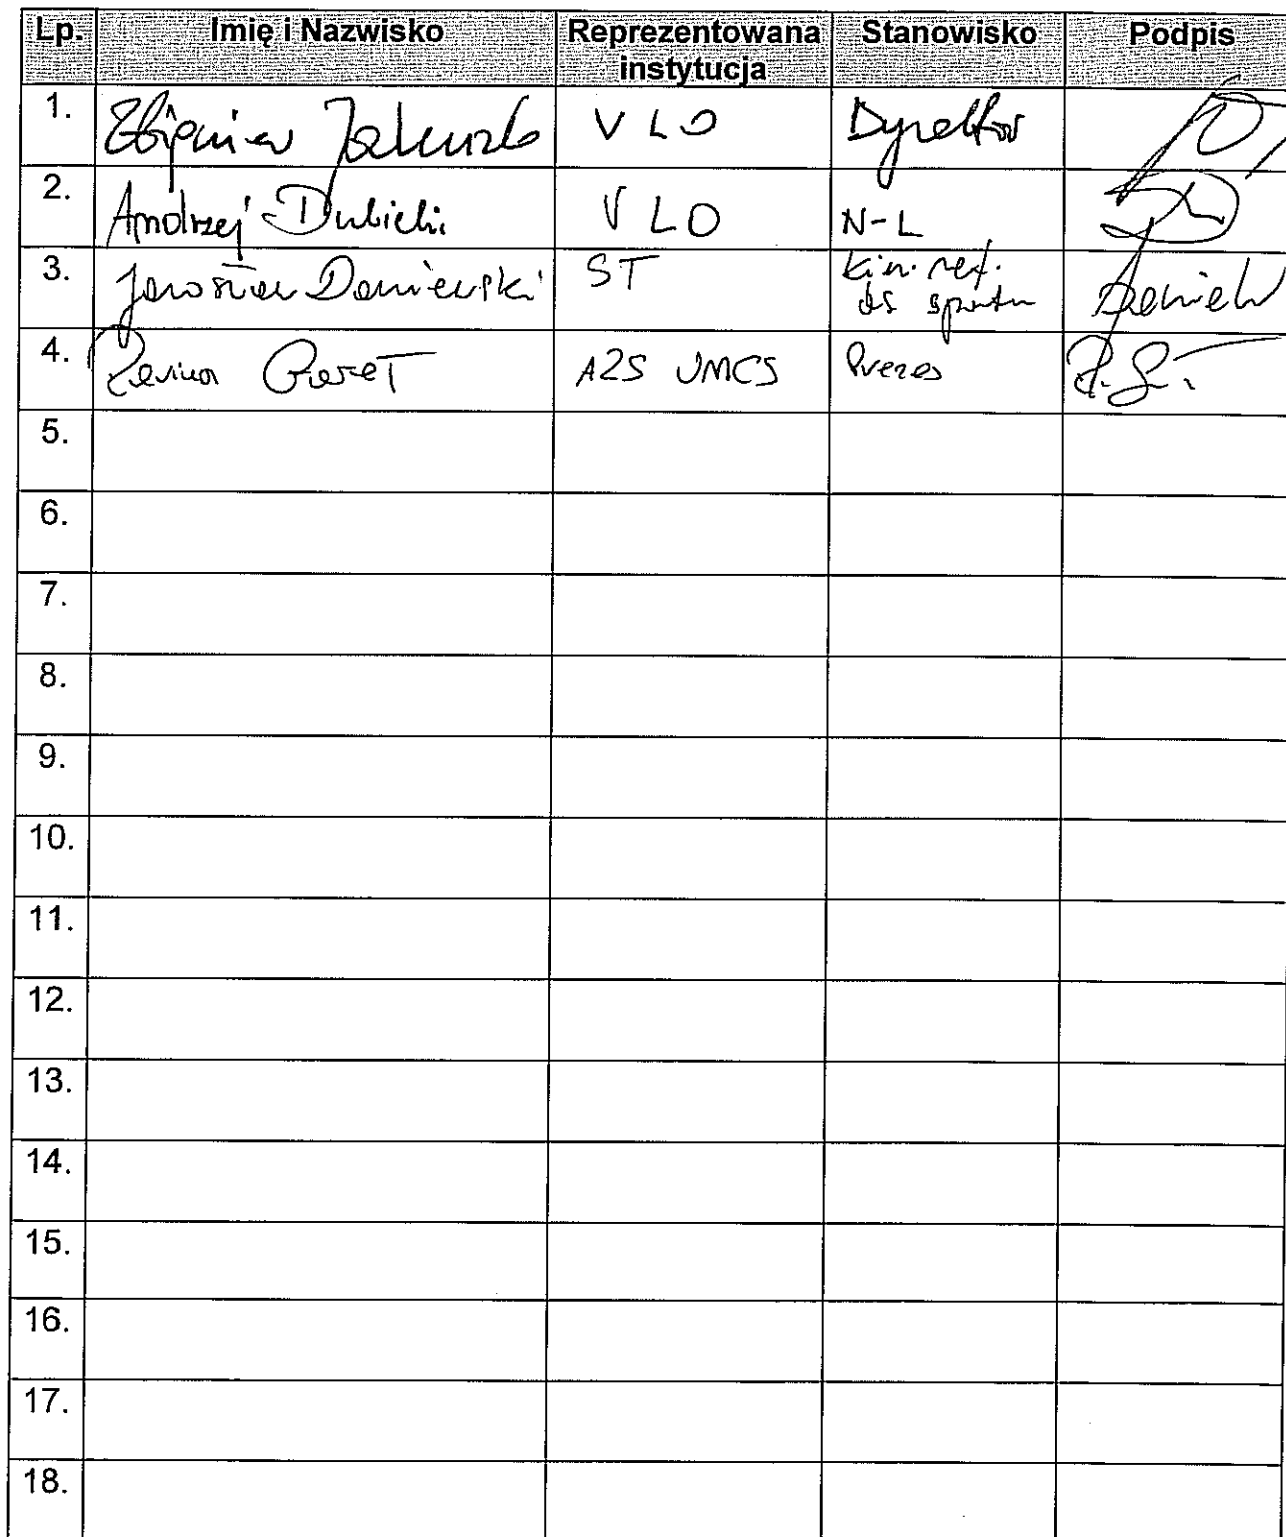 Lp. Imię i Nazwisko Reprezentowana instytucja Stanowisko Podpis
1. Zbigniew Jakuszko V LO Dyrektor
2. Andrzej Dubicki V LO N-L
3. Jarosław Daniewski ST Kier. ref. ds sportu
4. AZS UMCS Prezes
5.
6.
7.
8.
9.
10.
11.
12.
13.
14.
15.
16.
17.
18.